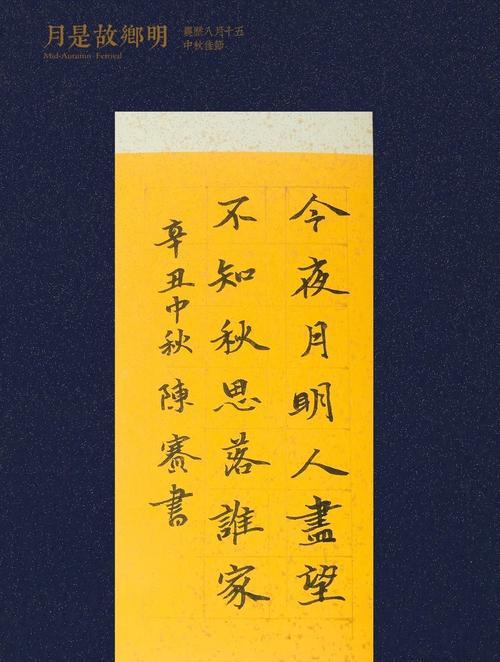 月是故鄉明
Mid-Autumn Festival
農歷八月十五
中秋佳節
今夜月明人盡望
不知秋思落誰家
辛丑中秋陳賽書